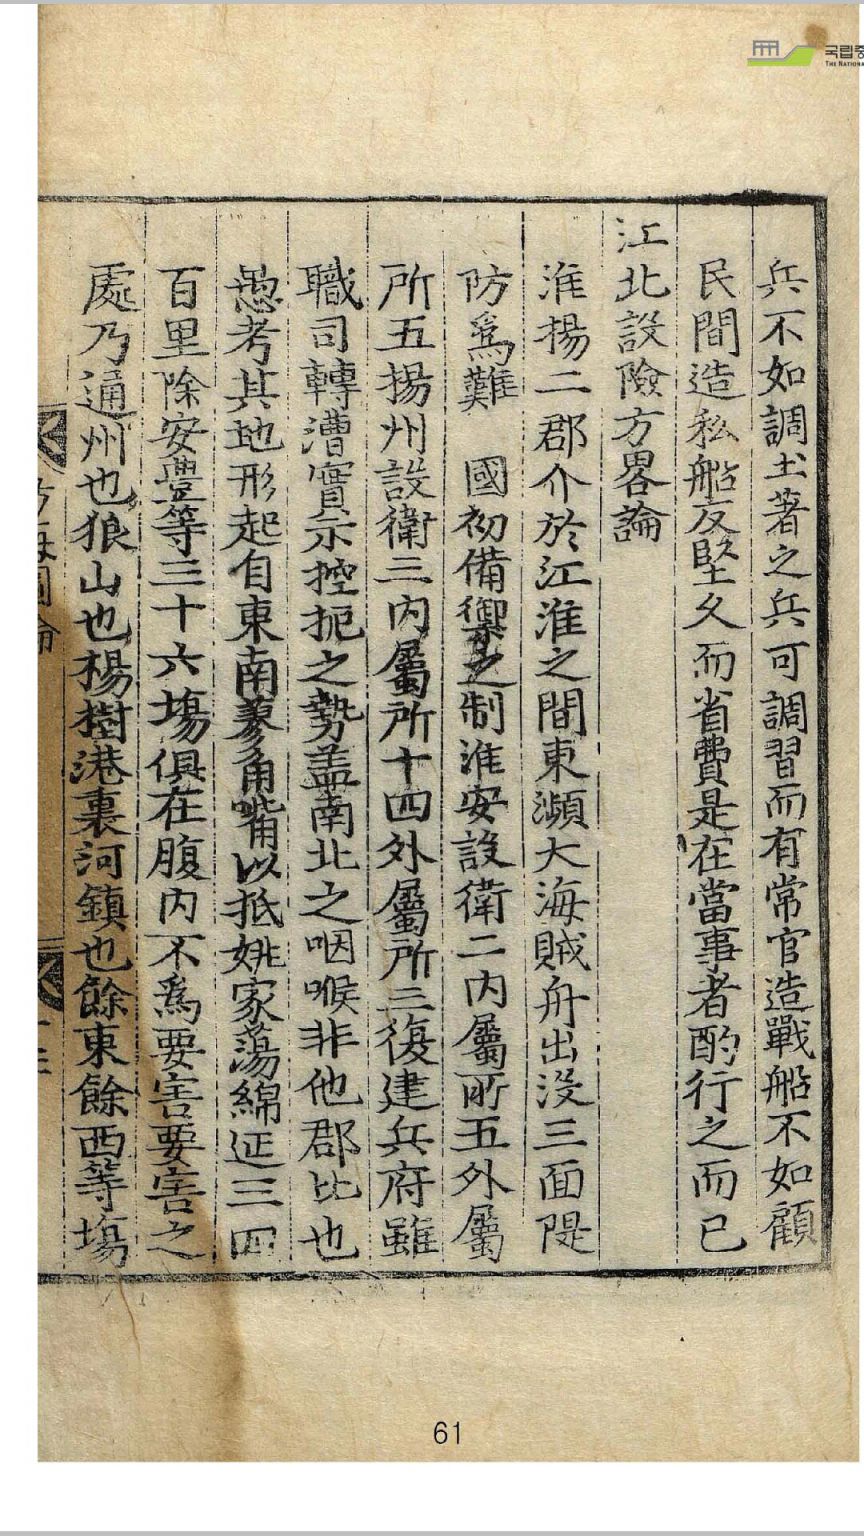 兵不如調土著之兵可調習而有常官造戰船不如顧
民間造私船反堅久而省費是在當事者酌行之而已
江北設險方畧論
淮揚二郡介於江淮之間東瀕大海賊舟出沒三面隄
防爲難 國初備禦之制淮安設衛二內屬所五外屬
所五揚州設衛三內屬所十四外屬所三復建兵府雖
職司轉漕實示控扼之勢盖南北之咽喉非他郡比也
愚考其地形起自東南蓼角嘴以抵姚家蕩綿延三四
百里除安豐等三十六塲俱在腹內不爲要害要害之
處乃通州也狼山也楊樹港裏河鎮也餘東餘西等塲
국립중
THE NATIONA
61